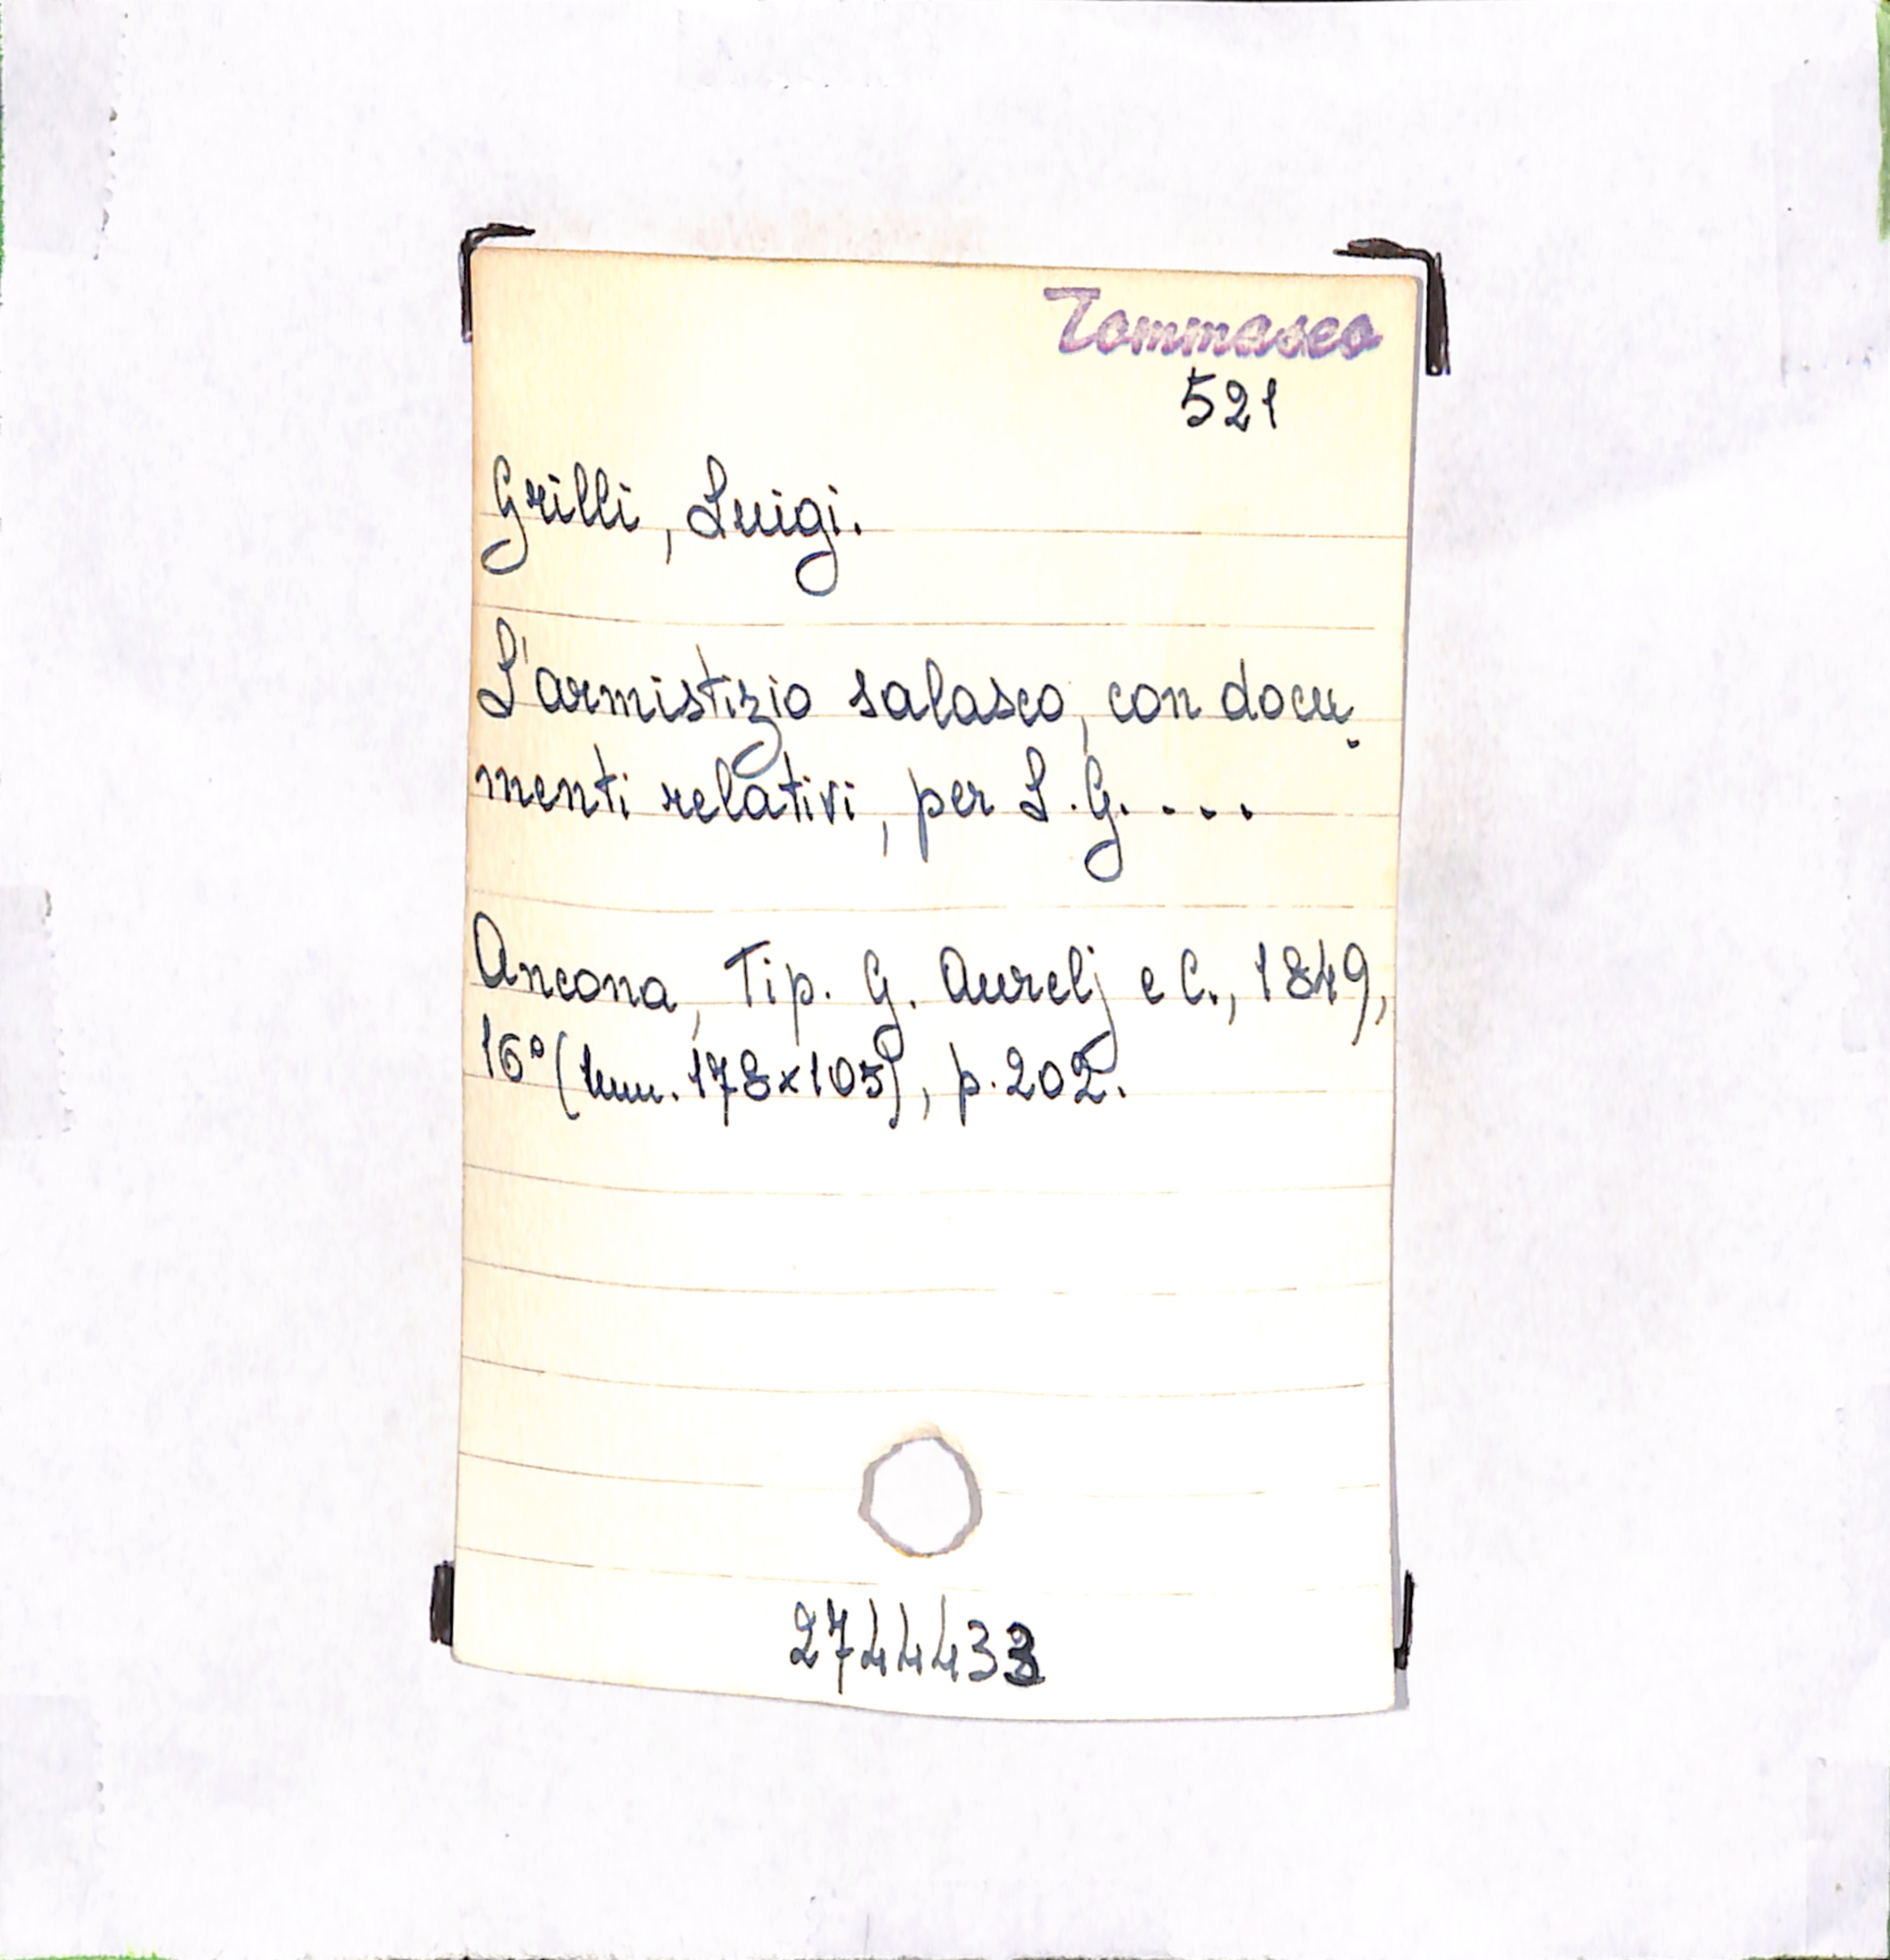 Tommaseo
521
Grilli, Luigi.
L'armistizio salasco, con docu-
menti relativi, per L. G. ...
Ancona, Tip. G. Aurelj e C., 1849,
16° (mm. 178x105), p. 202.
2744433